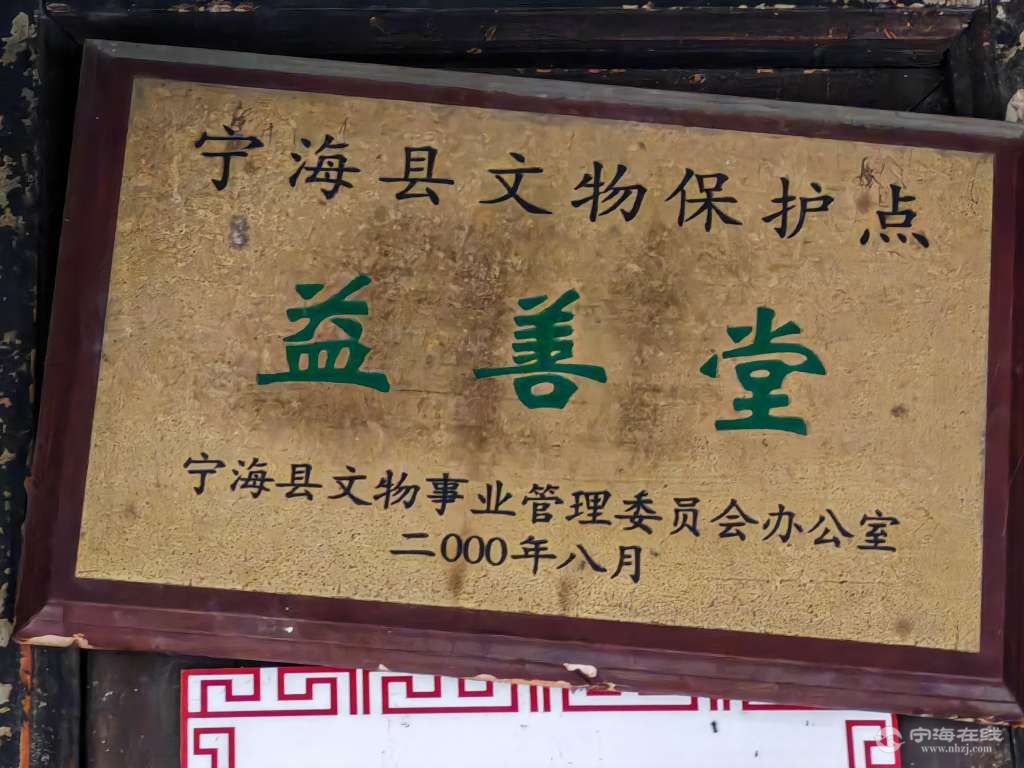 宁海县文物保护点
益善堂
宁海县文物事业管理委员会办公室
二000年八月
宁海在线
www.nhzj.com